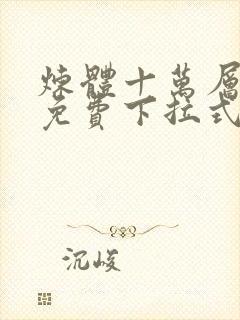 煉體十萬層
免費下拉式
沉峻